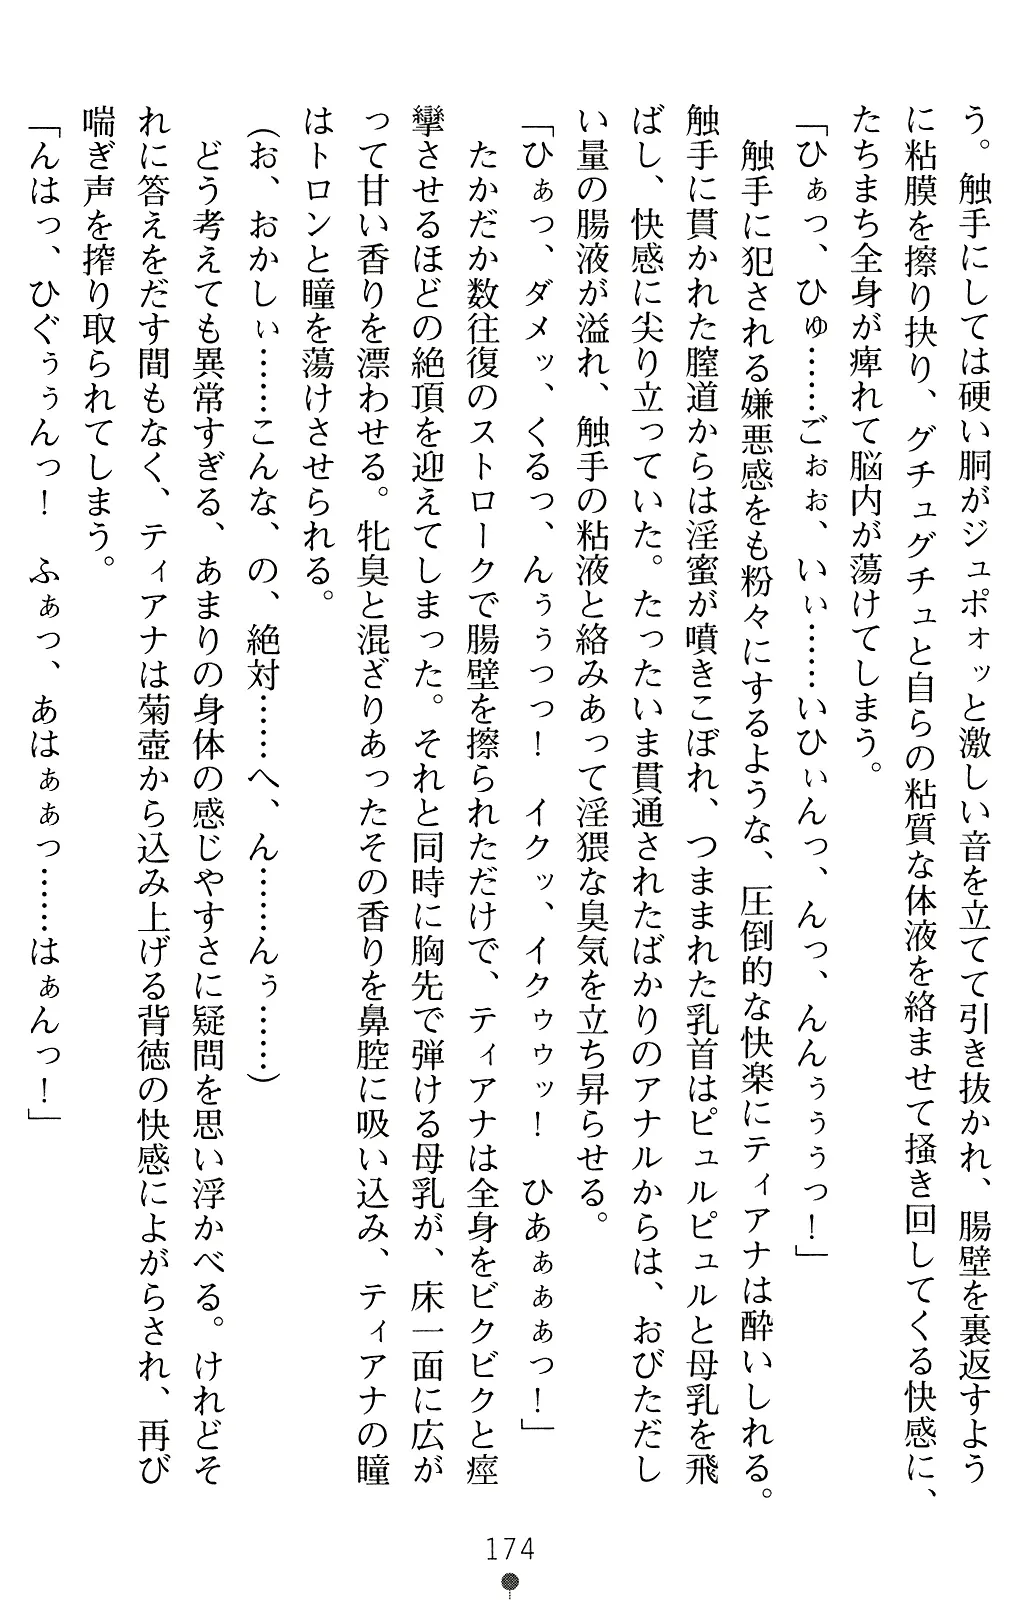 う。触手にしては硬い胴がジュポォッと激しい音を立てて引き抜かれ、腸壁を裏返すよう
に粘膜を擦り抉り、グチュグチュと自らの粘質な体液を絡ませて掻き回してくる快感に、
たちまち全身が痺れて脳内が蕩けてしまう。
「ひぁっ、ひゅ……ごぉぉ、いぃ……いひぃんっ、んっ、んんぅぅぅっ！」
　触手に犯される嫌悪感をも粉々にするような、圧倒的な快楽にティアナは酔いしれる。
触手に貫かれた膣道からは淫蜜が噴きこぼれ、つままれた乳首はピュルピュルと母乳を飛
ばし、快感に尖り立っていた。たったいま貫通されたばかりのアナルからは、おびただし
い量の腸液が溢れ、触手の粘液と絡みあって淫猥な臭気を立ち昇らせる。
「ひぁっ、ダメッ、くるっ、んぅぅっっ！　イクッ、イクゥゥッ！　ひあぁぁぁっ！」
　たかだか数往復のストロークで腸壁を擦られただけで、ティアナは全身をビクビクと痙
攣させるほどの絶頂を迎えてしまった。それと同時に胸先で弾ける母乳が、床一面に広が
って甘い香りを漂わせる。牝臭と混ざりあったその香りを鼻腔に吸い込み、ティアナの瞳
はトロンと瞳を蕩けさせられる。
（お、おかしぃ……こんな、の、絶対……へ、ん……んぅ……）
　どう考えても異常すぎる、あまりの身体の感じやすさに疑問を思い浮かべる。けれどそ
れに答えをだす間もなく、ティアナは菊壺から込み上げる背徳の快感によがらされ、再び
喘ぎ声を搾り取られてしまう。
「んはっ、ひぐぅぅんっ！　ふぁっ、あはぁぁっ……はぁんっ！」
174